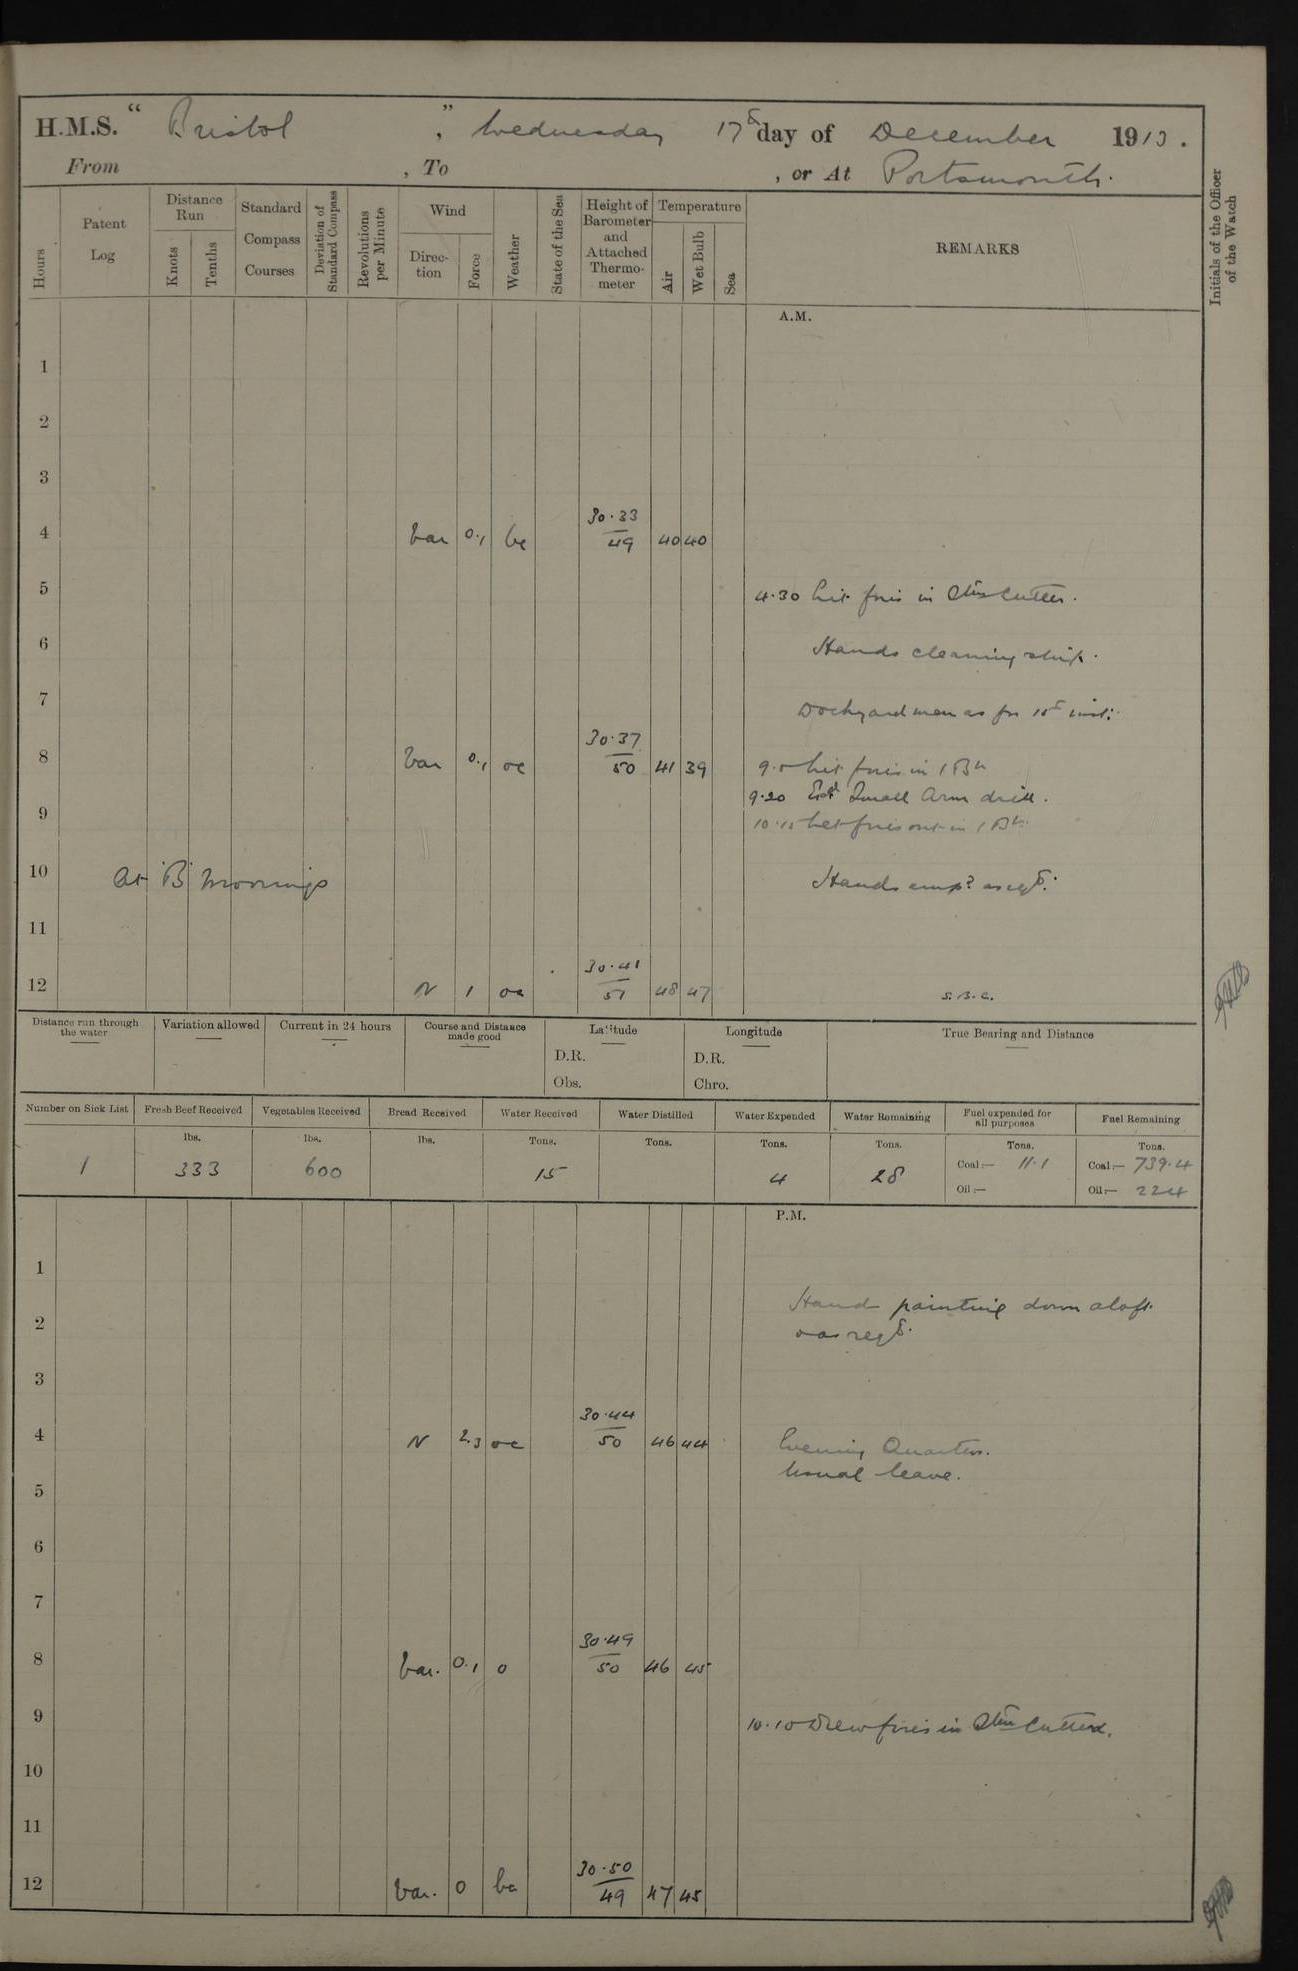 H.M.S. " Bristol ", Wednesday 17th day of December 1913.
From , To , or At Portsmouth.
Hours
Patent Log
Distance Run
Knots
Tenths
Standard Compass Courses
Deviation of Standard Compass
Revolutions per Minute
Wind
Direction
Force
Weather
State of the Sea
Height of Barometer and Attached Thermometer
Temperature
Air
Wet Bulb
Sea
REMARKS
Initials of the Officer of the Watch
A.M.
1
2
3
4 Var 0.1 bc 30.33 49 40 40
5 4.30 Lit fires in Stm Cutter.
6 Hands cleaning ship.
7 Dockyard men as for 15th inst:
8 Var 0.1 oc 30.37 50 41 39
9.0 Lit fires in 1 Br
9.20 Exd Small Arm drill.
9
10.15 Let fires out in 1 Br.
10 At B Moorings Hands empd as reqd.
11
12 N 1 oc 30.41 51 48 47 S.B.C.
Distance run through the water
Variation allowed
Current in 24 hours
Course and Distance made good
Latitude
D.R.
Obs.
Longitude
D.R.
Chro.
True Bearing and Distance
Number on Sick List
Fresh Beef Received
Vegetables Received
Bread Received
Water Received
Water Distilled
Water Expended
Water Remaining
Fuel expended for all purposes
Fuel Remaining
lbs. lbs. lbs. Tons. Tons. Tons. Tons. Tons. Tons.
1 333 600 15 4 28 Coal:— 11.1 Coal:— 739.4
Oil:— Oil:— 224
P.M.
1
Hands painting down aloft
2 & as reqd.
3
4 N 2.3 oc 30.44 50 46 44 Evening Quarters.
Usual leave.
5
6
7
8 Var. 0.1 o 30.49 50 46 45
9 10.10 Drew fires in Stm Cutter.
10
11
12 Var. 0 bc 30.50 49 47 45